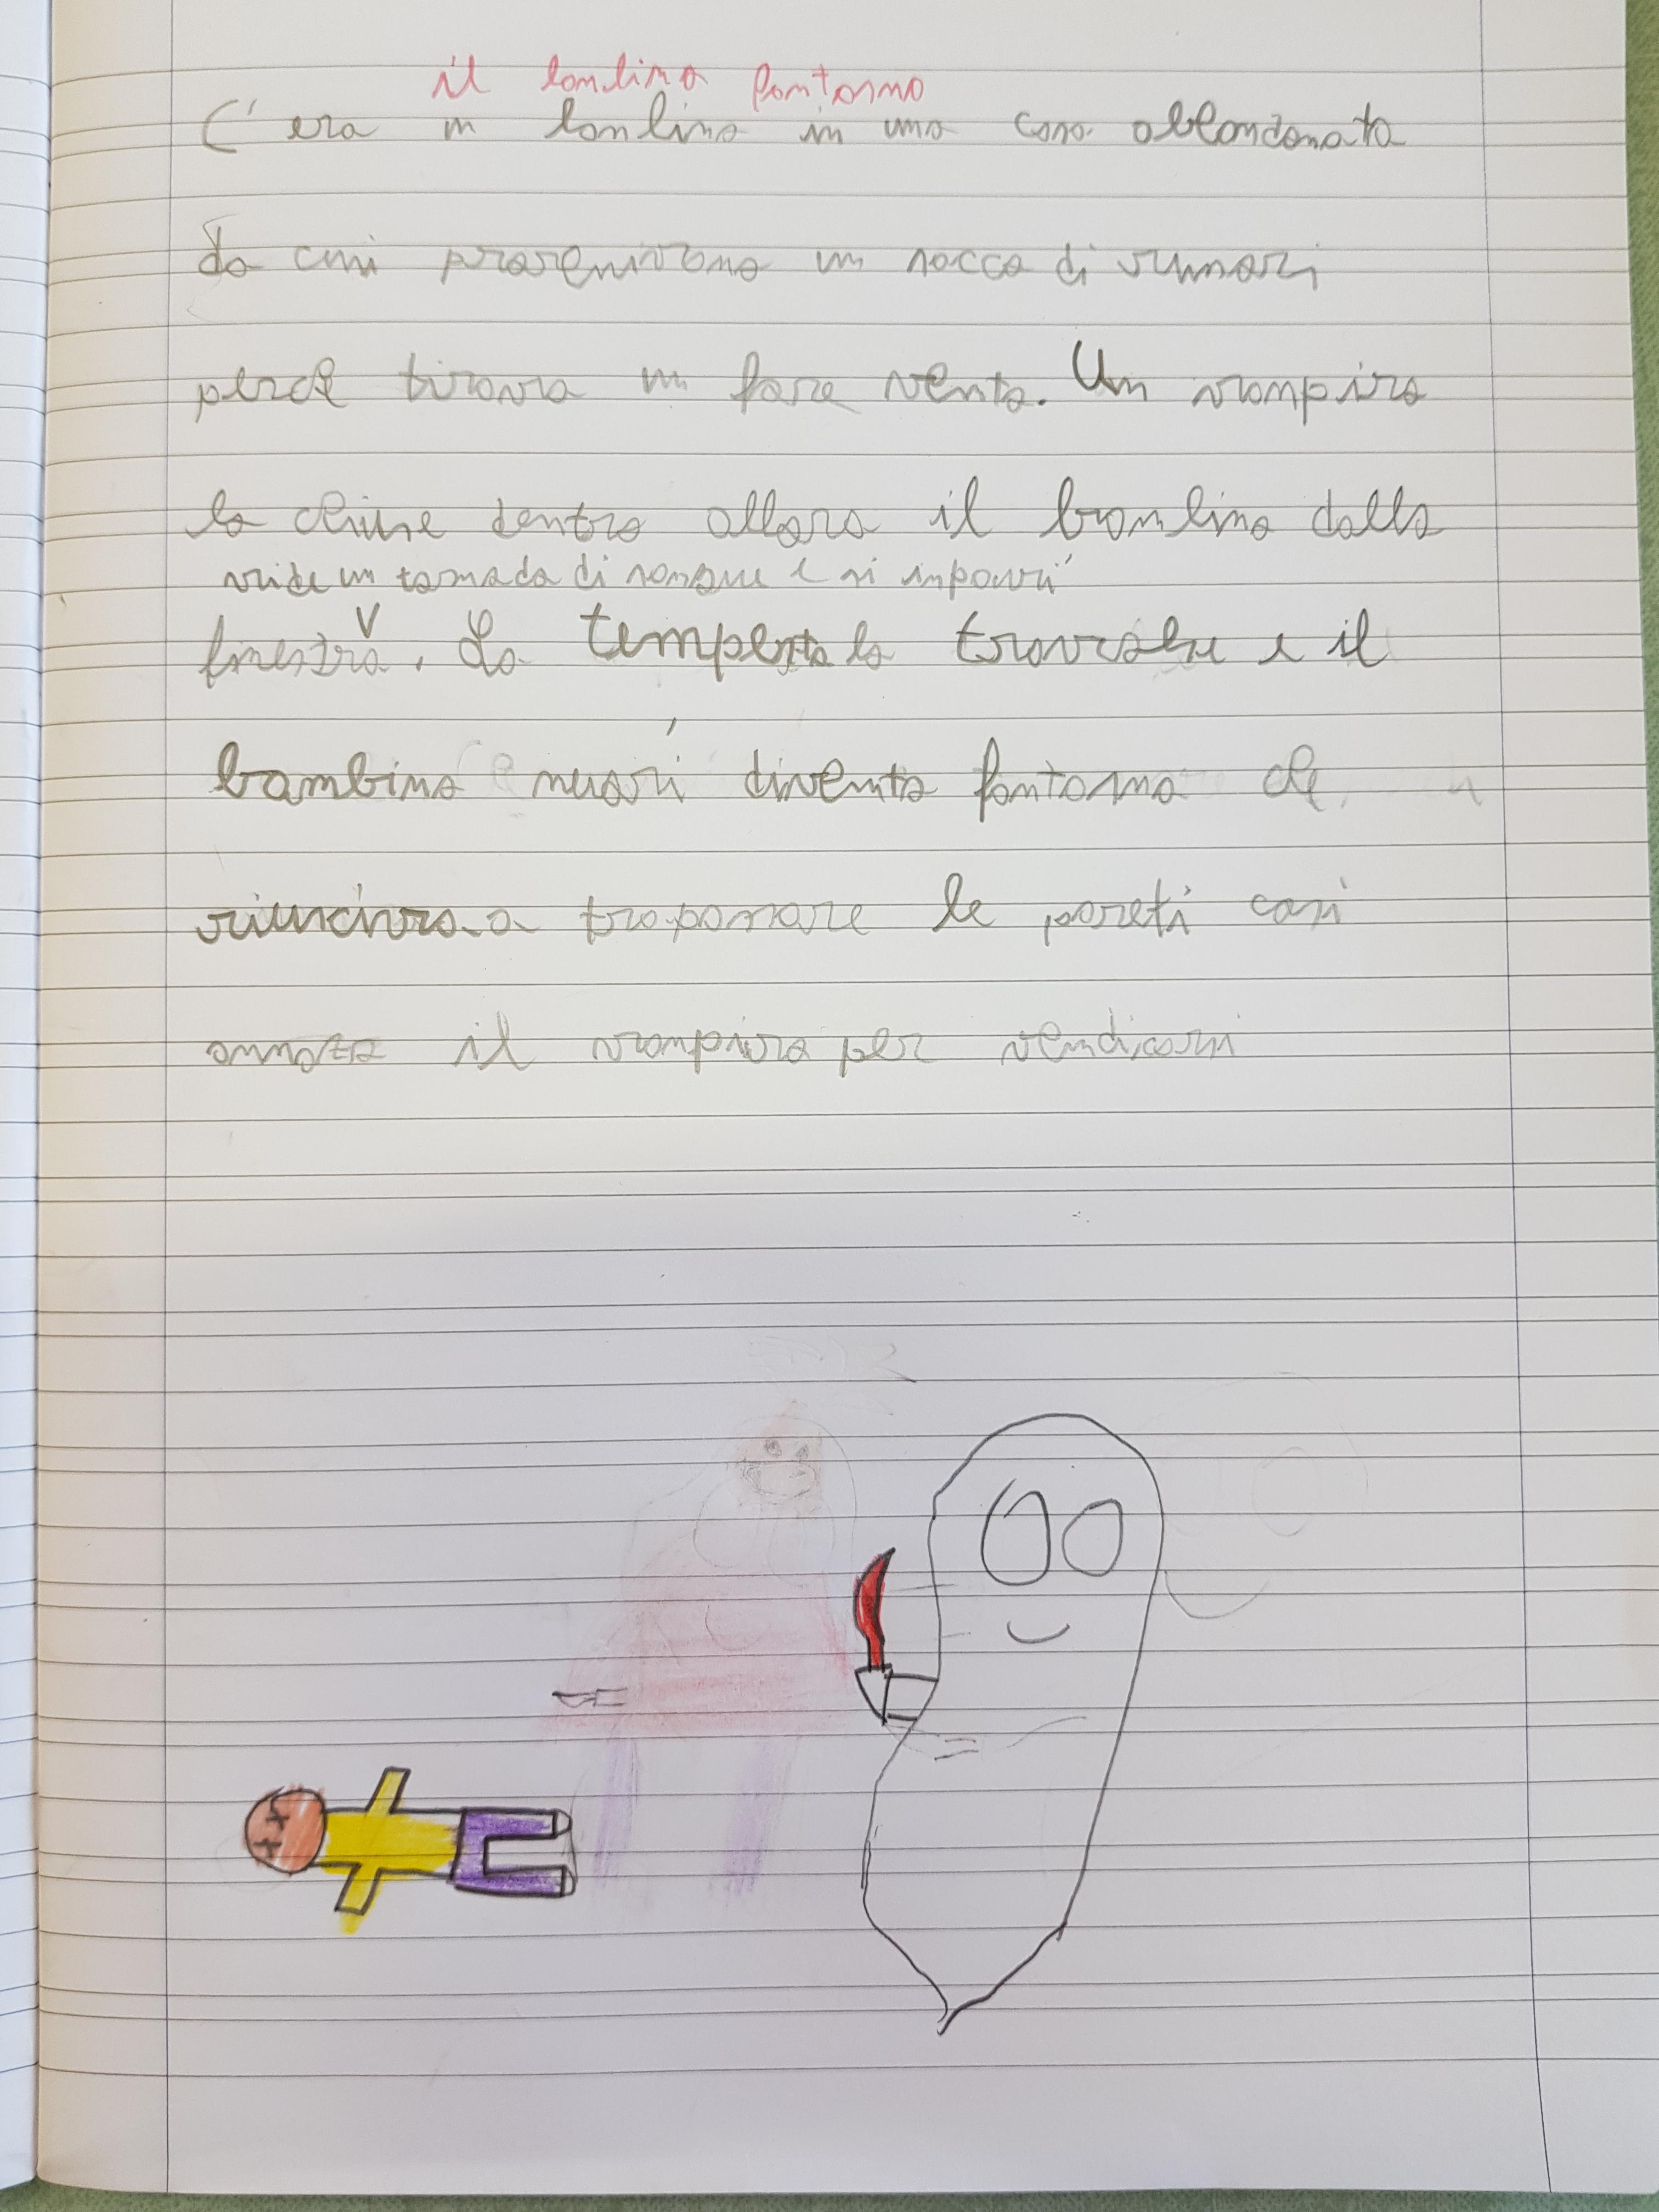 il bambino fantasma
C'era un bambino in una casa abbandonata
da cui provenivano un sacco di rumori
perché tirava un forte vento. Un vampiro
lo chiuse dentro allora il bambino dalla
vide un tornado di sangue e si impaurì
finestra V. La tempesta lo travolse e il
bambino morì diventa fantasma che
riusciva a trapassare le pareti così
il vampiro per vendicarsi